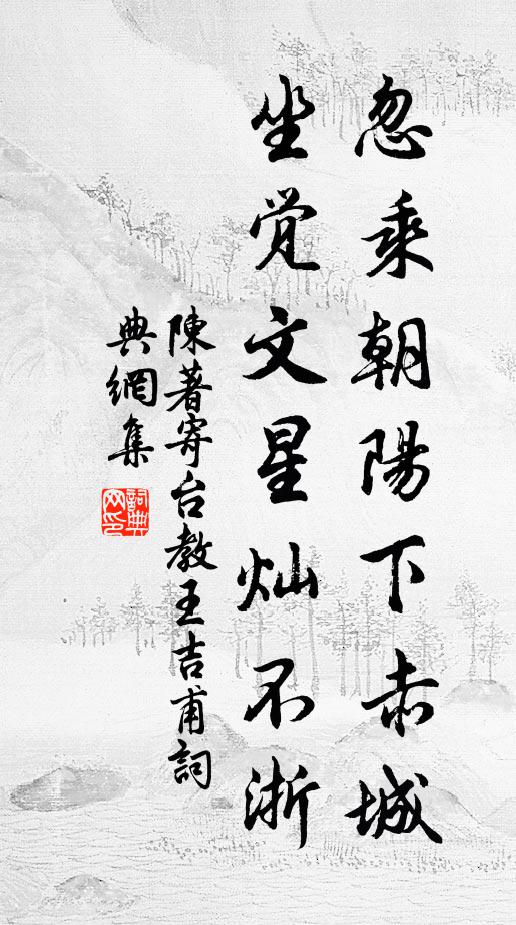 忽乘朝陽下赤城
坐覺文星灿不淅
陳著寄台教王吉甫詞
典網集
詞典网印